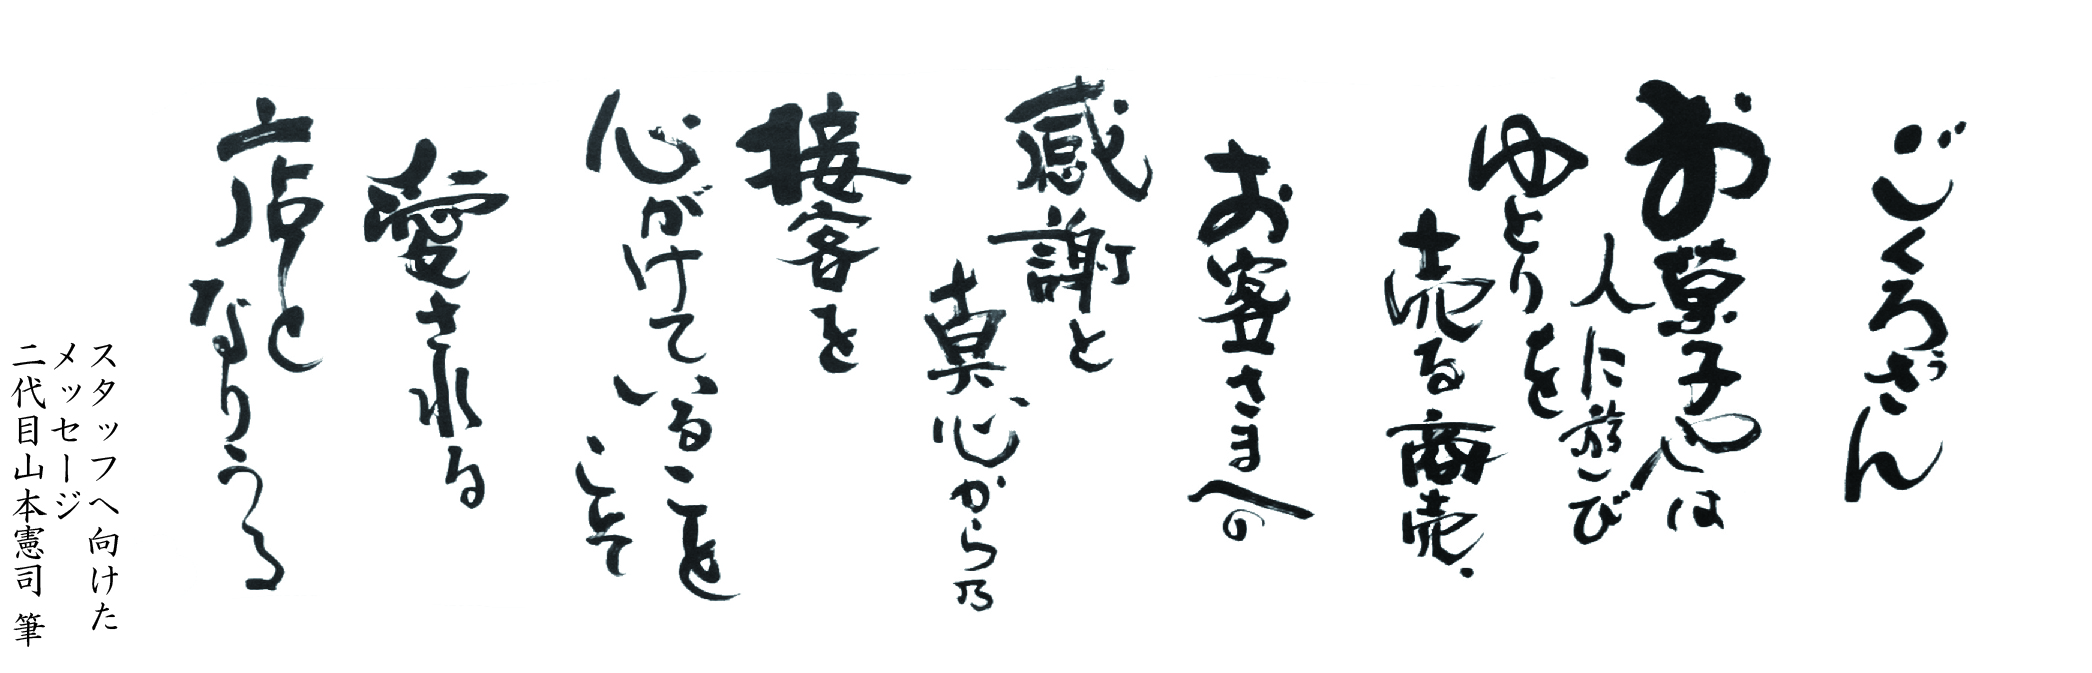 ごくろうさん
お菓子やは
人に遊び
ゆとりを
売る商売.
お客さまへの
感謝と
真心から乃
接客を
心がけていること
こそ
愛される
店と
なりうる
スタッフへ向けた
メッセージ
二代目山本憲司 筆